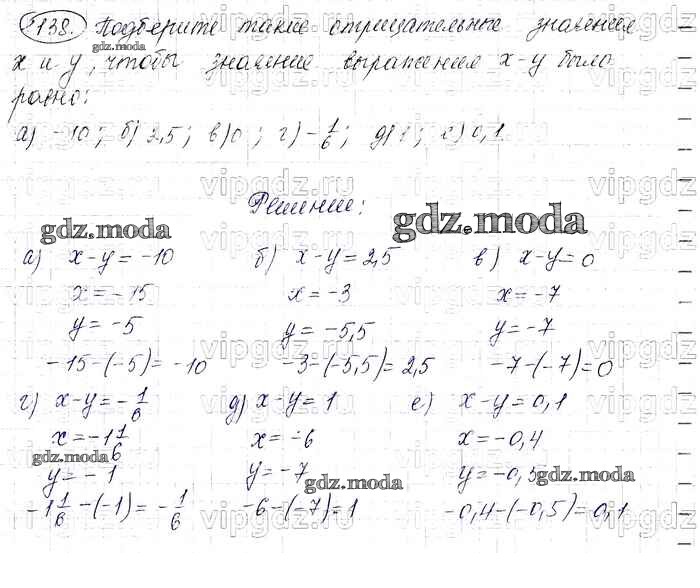 1138. Подберите такие отрицательные значения
gdz.moda
x и y, чтобы значение выражения x-y было
равно:
а) -10; б) 2,5; в) 0; г) -1/6; д) 1; е) 0,1
Решение:
gdz.moda
gdz.moda
а) x-y = -10
x = -15
y = -5
-15-(-5) = -10
б) x-y = 2,5
x = -3
y = -5,5
-3-(-5,5) = 2,5
в) x-y = 0
x = -7
y = -7
-7-(-7) = 0
г) x-y = -1/6
x = -1 1/6
gdz.moda
y = -1
-1 1/6 -(-1) = -1/6
д) x-y = 1
x = -6
y = -7
gdz.moda
-6-(-7) = 1
е) x-y = 0,1
x = -0,4
y = -0,5
gdz.moda
-0,4-(-0,5) = 0,1
vipgdz.ru